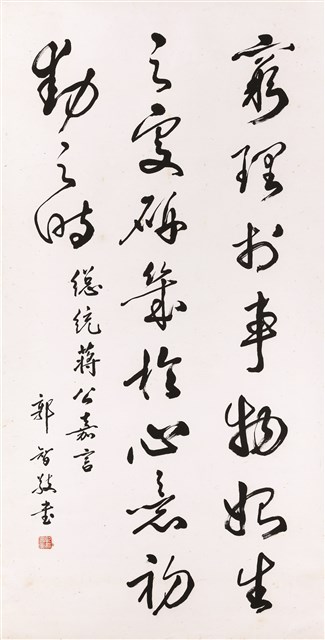 窮理於事物始生
之處研幾於心意初
動之時
總統蔣公嘉言
郭智書